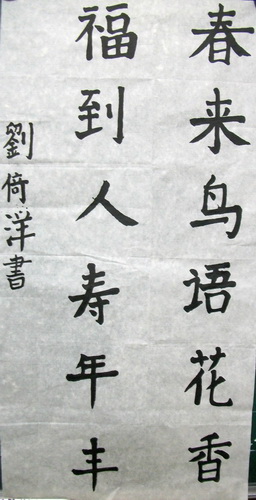 春来鸟语花香
福到人寿年丰
劉倚洋書